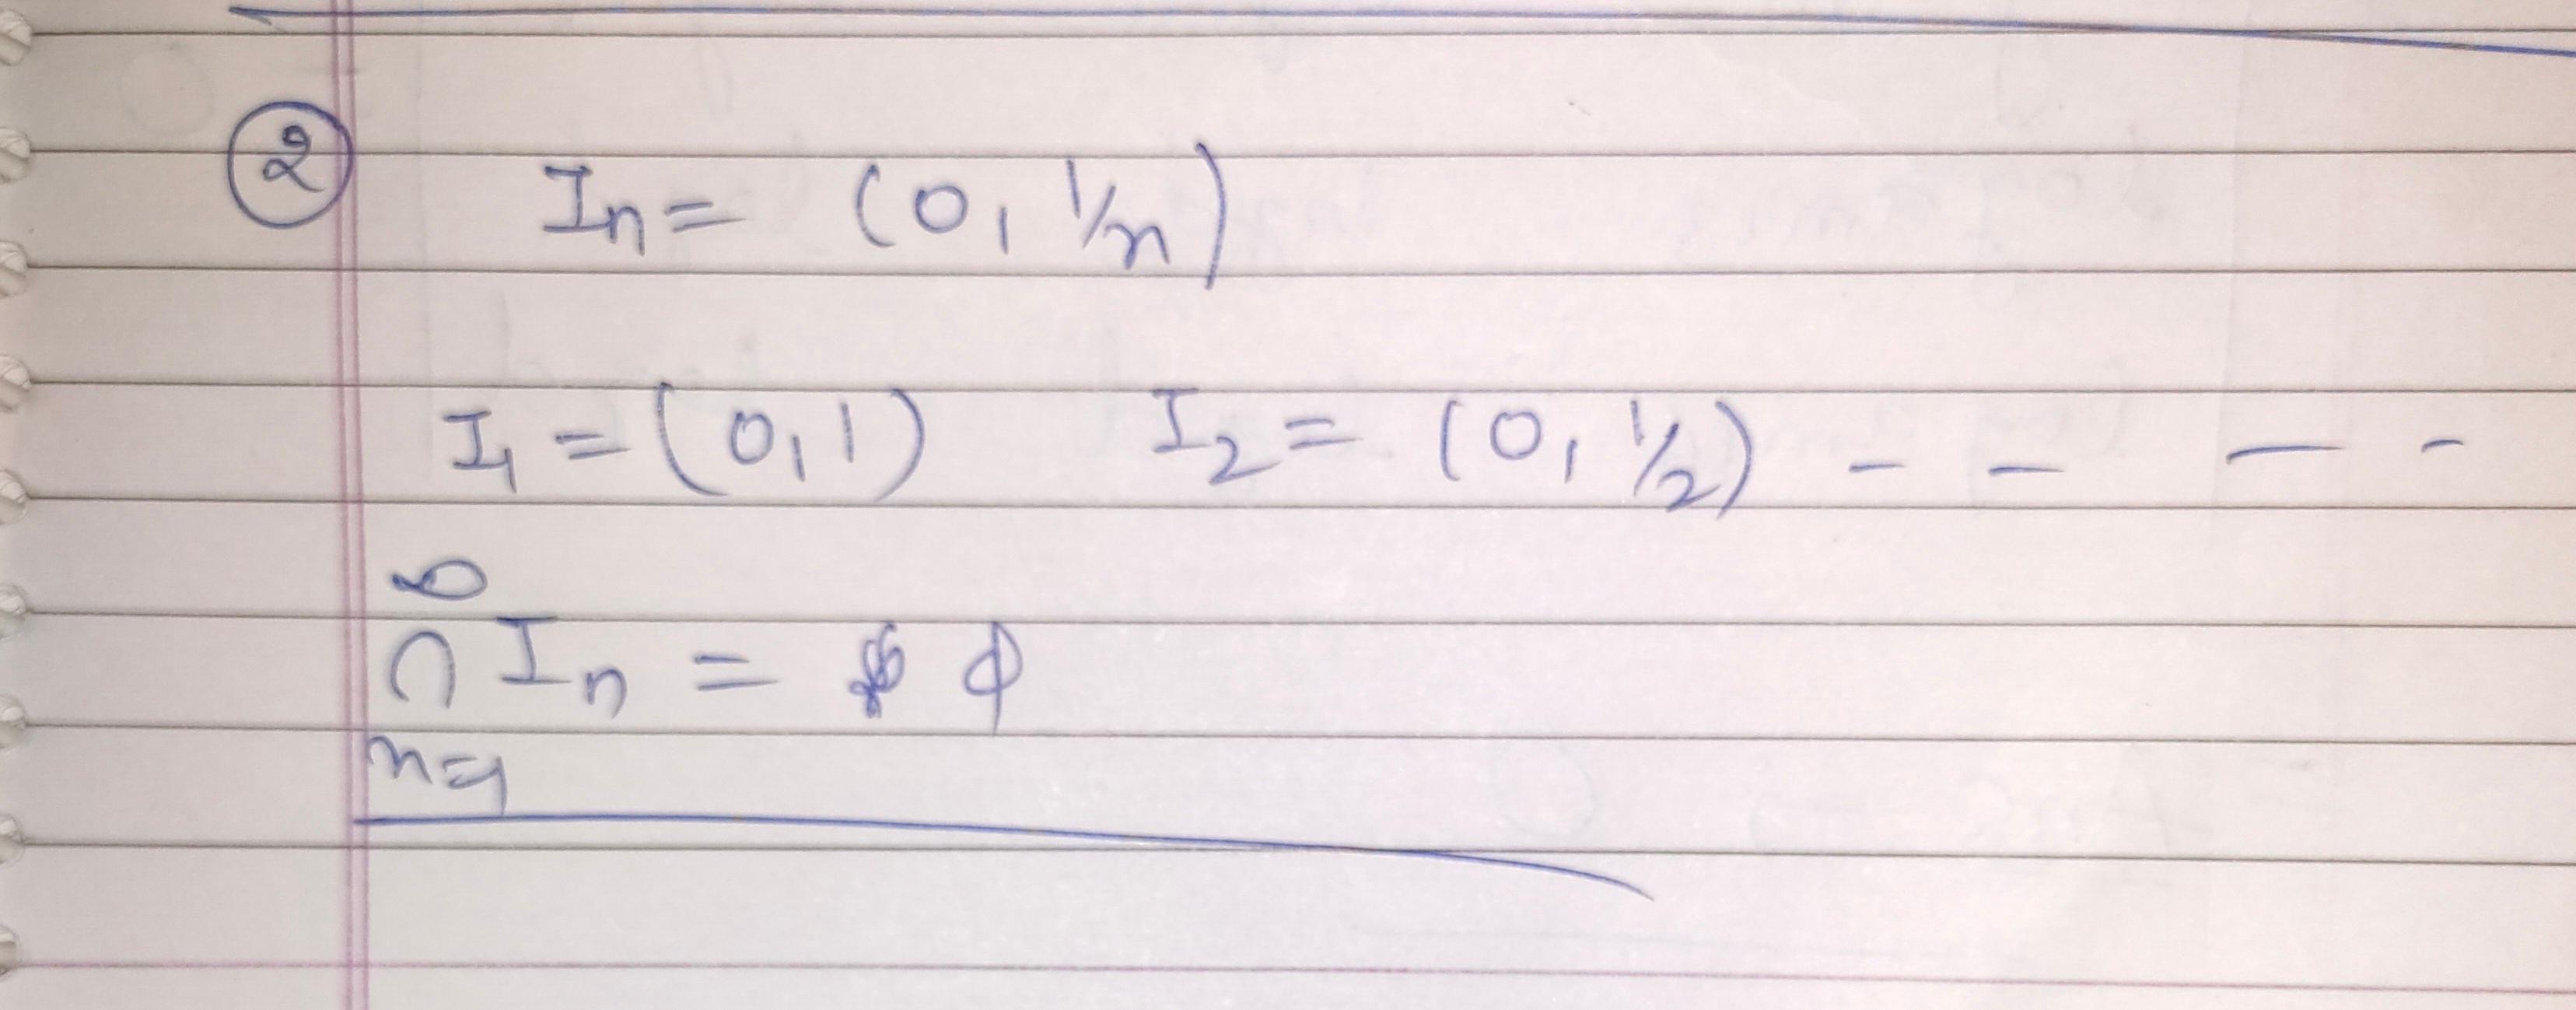 ② Iₙ = (0, 1/n)
I₁ = (0, 1) I₂ = (0, 1/2) - - - -
∞
∩ Iₙ = ϕ
n=1